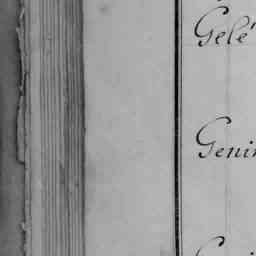 Gelé
Geni